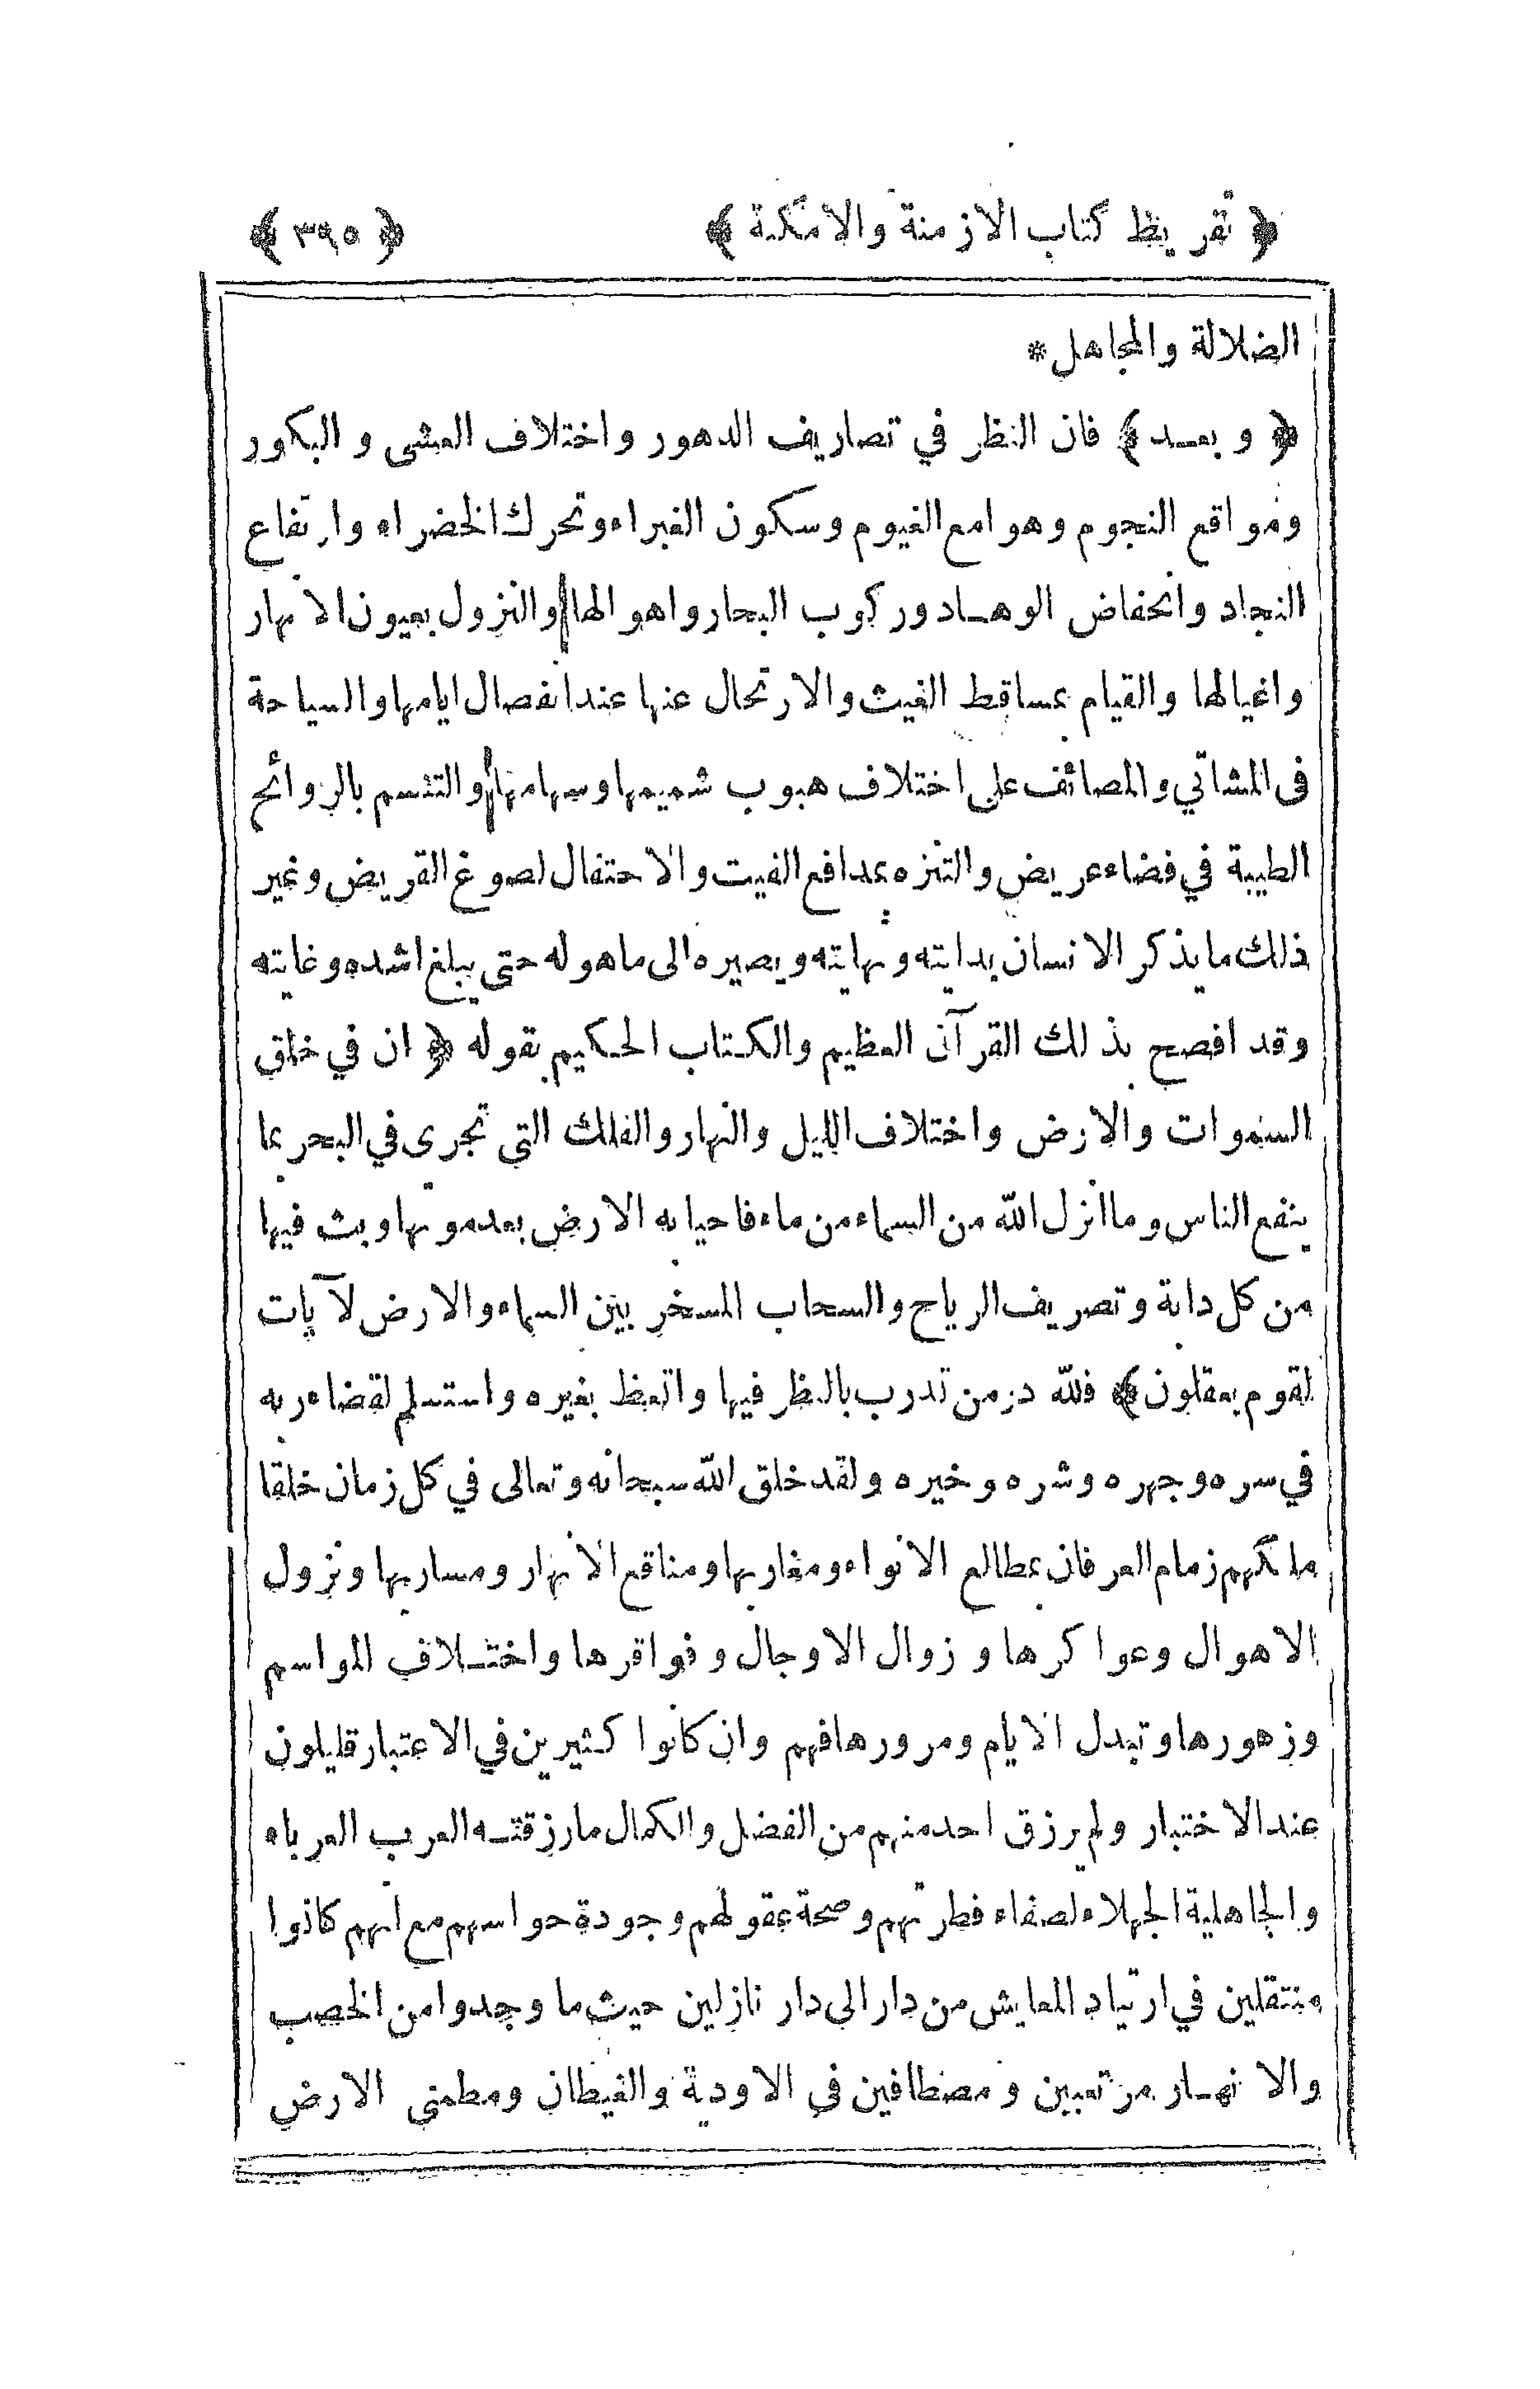 ﴿ تقريظ كتاب الازمنة والامكنة ﴾ ﴿ ٣٩٥ ﴾
الضلالة والمجاهل *
﴿ وبعد ﴾ فان النظر في تصاريف الدهور واختلاف العشى والبكور
ومواقع النجوم وهوامع الغيوم وسكون الغبراء وتحرك الخضراء وارتفاع
النجاد وانخفاض الوهاد وركوب البحار واهوالها والنزول بعيون الانهار
واغيالها والقيام بمساقط الغيث والارتحال عنها عند انفصال ايامها والسياحة
فى المشاتي والمصائف على اختلاف هبوب شميمها وسهامها والتنسم بالروائح
الطيبة في فضاء عريض والتنزه بمدافع الغيث والاحتفال لصوغ القريض وغير
ذلك مايذكر الانسان بدايته ونهايته ويصيره الى ماهوله حتى يبلغ اشده وغايته
وقد افصح بذلك القرآن العظيم والكتاب الحكيم بقوله ﴿ ان في خلق
السموات والارض واختلاف الليل والنهار والفلك التي تجرى في البحر بما
ينفع الناس وما انزل الله من السماء من ماء فاحيا به الارض بعد موتها وبث فيها
من كل دابة وتصريف الرياح والسحاب المسخر بين السماء والارض لآيات
لقوم يعقلون ﴾ فلله در من تدرب بالنظر فيها واتعظ بغيره واستسلم لقضاء ربه
في سره وجهره وشره وخيره ولقد خلق الله سبحانه وتعالى في كل زمان خلقا
ملكهم زمام العرفان بمطالع الانواء ومغاربها ومناقع الانهار ومساربها ونزول
الاهوال وعواكرها وزوال الاوجال وفواقرها واختلاف المواسم
وزهورها وتبدل الايام ومرورها فهم وان كانوا كثيرين في الاعتبار قليلون
عند الاختبار ولم يرزق احد منهم من الفضل والكمال مارزقته العرب العرباء
والجاهلية الجهلاء لصفاء فطرتهم وصحة عقولهم وجودة حواسهم مع انهم كانوا
منتقلين في ارتياد المعايش من دار الى دار نازلين حيث ما وجدوا من الخصب
والانهار مرتعبين ومصطافين في الاودية والغيطان ومطمئن الارض